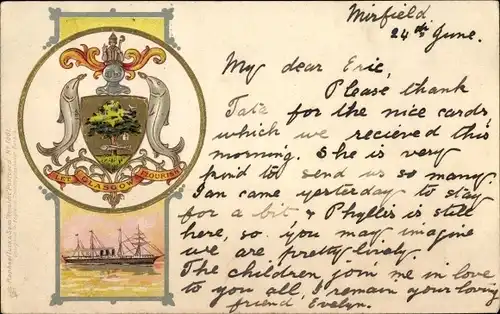 Mirfield.
24th June.
My dear Eric,
Please thank
Tata for the nice cards,
which we recieved this
morning. She is very
kind to send us so many
Ian came yesterday to stay
for a bit & Phyllis is still
here, so you may imagine
we are pretty lively.
The children join me in love
to you all, I remain your loving
friend Evelyn.
LET GLASGOW FLOURISH